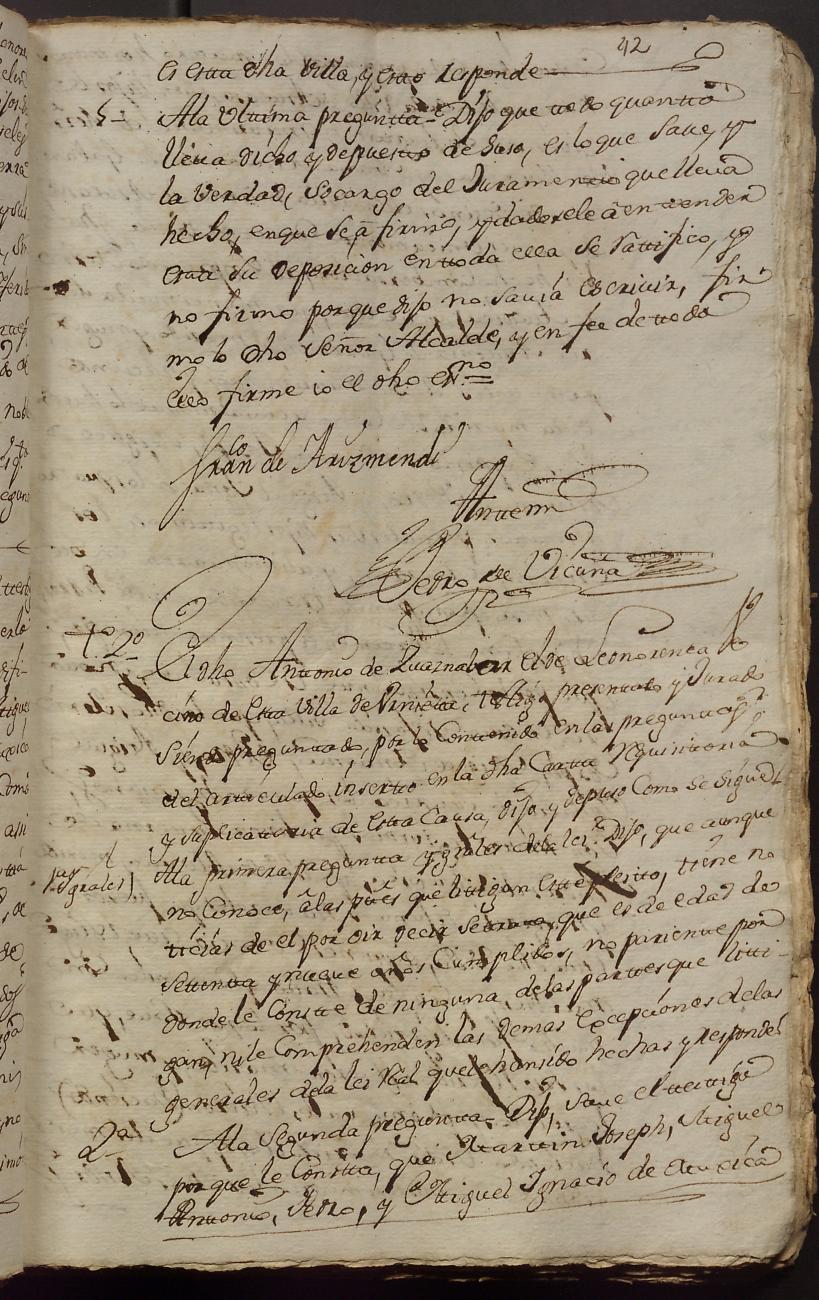 42
es esta dha villa, y esto responde
5- Ala Ultima pregunta= Dijo que todo quanto
lleva dicho, y depuesto de suso, es lo que save, y
la verdad, socargo del Juramento que lleva
hecho, en que se afirmo, y dadosele a entender
esta su deposicion en toda ella se rattifico, y
no firmo porque dijo no savia escrivir, fir
mo lo dho Señor Alcalde, y en fee de todo
ello firme io el dho essno=
Franco de Arizmendi
Antemi
Pedro de Vicuña
to 2o El dho Antonio de Zuaznabar el de Leonorenea Ve
cino de esta Villa de testigo presentado y Jurado
Siendo preguntado, por lo Contenido en las preguntas
del articulado inserto en la dha Carta Requisitoria
y suplicatoria de esta Causa, Dijo, y depuso Como se sigue
1a y grales Ala primera pregunta y grales dela lei: Dijo, que aunque
no Conoce, â las ptes que litigan este pleito, tiene no
ticias de el por oir decir que es de edad de
Settenta y nueve años Cumplidos, no pariente por
donde le Conste de ninguna delas partes que litti-
gan, ni le Comprehenden las demas Excepciones delas
generales dela lei Real que le han sido hechas y responde
2a Ala Segunda pregunta Dijo, save el testigo
porque le Consta, que Martin Joseph, Miguel
Antonio, Pedro, y Miguel Ignacio de